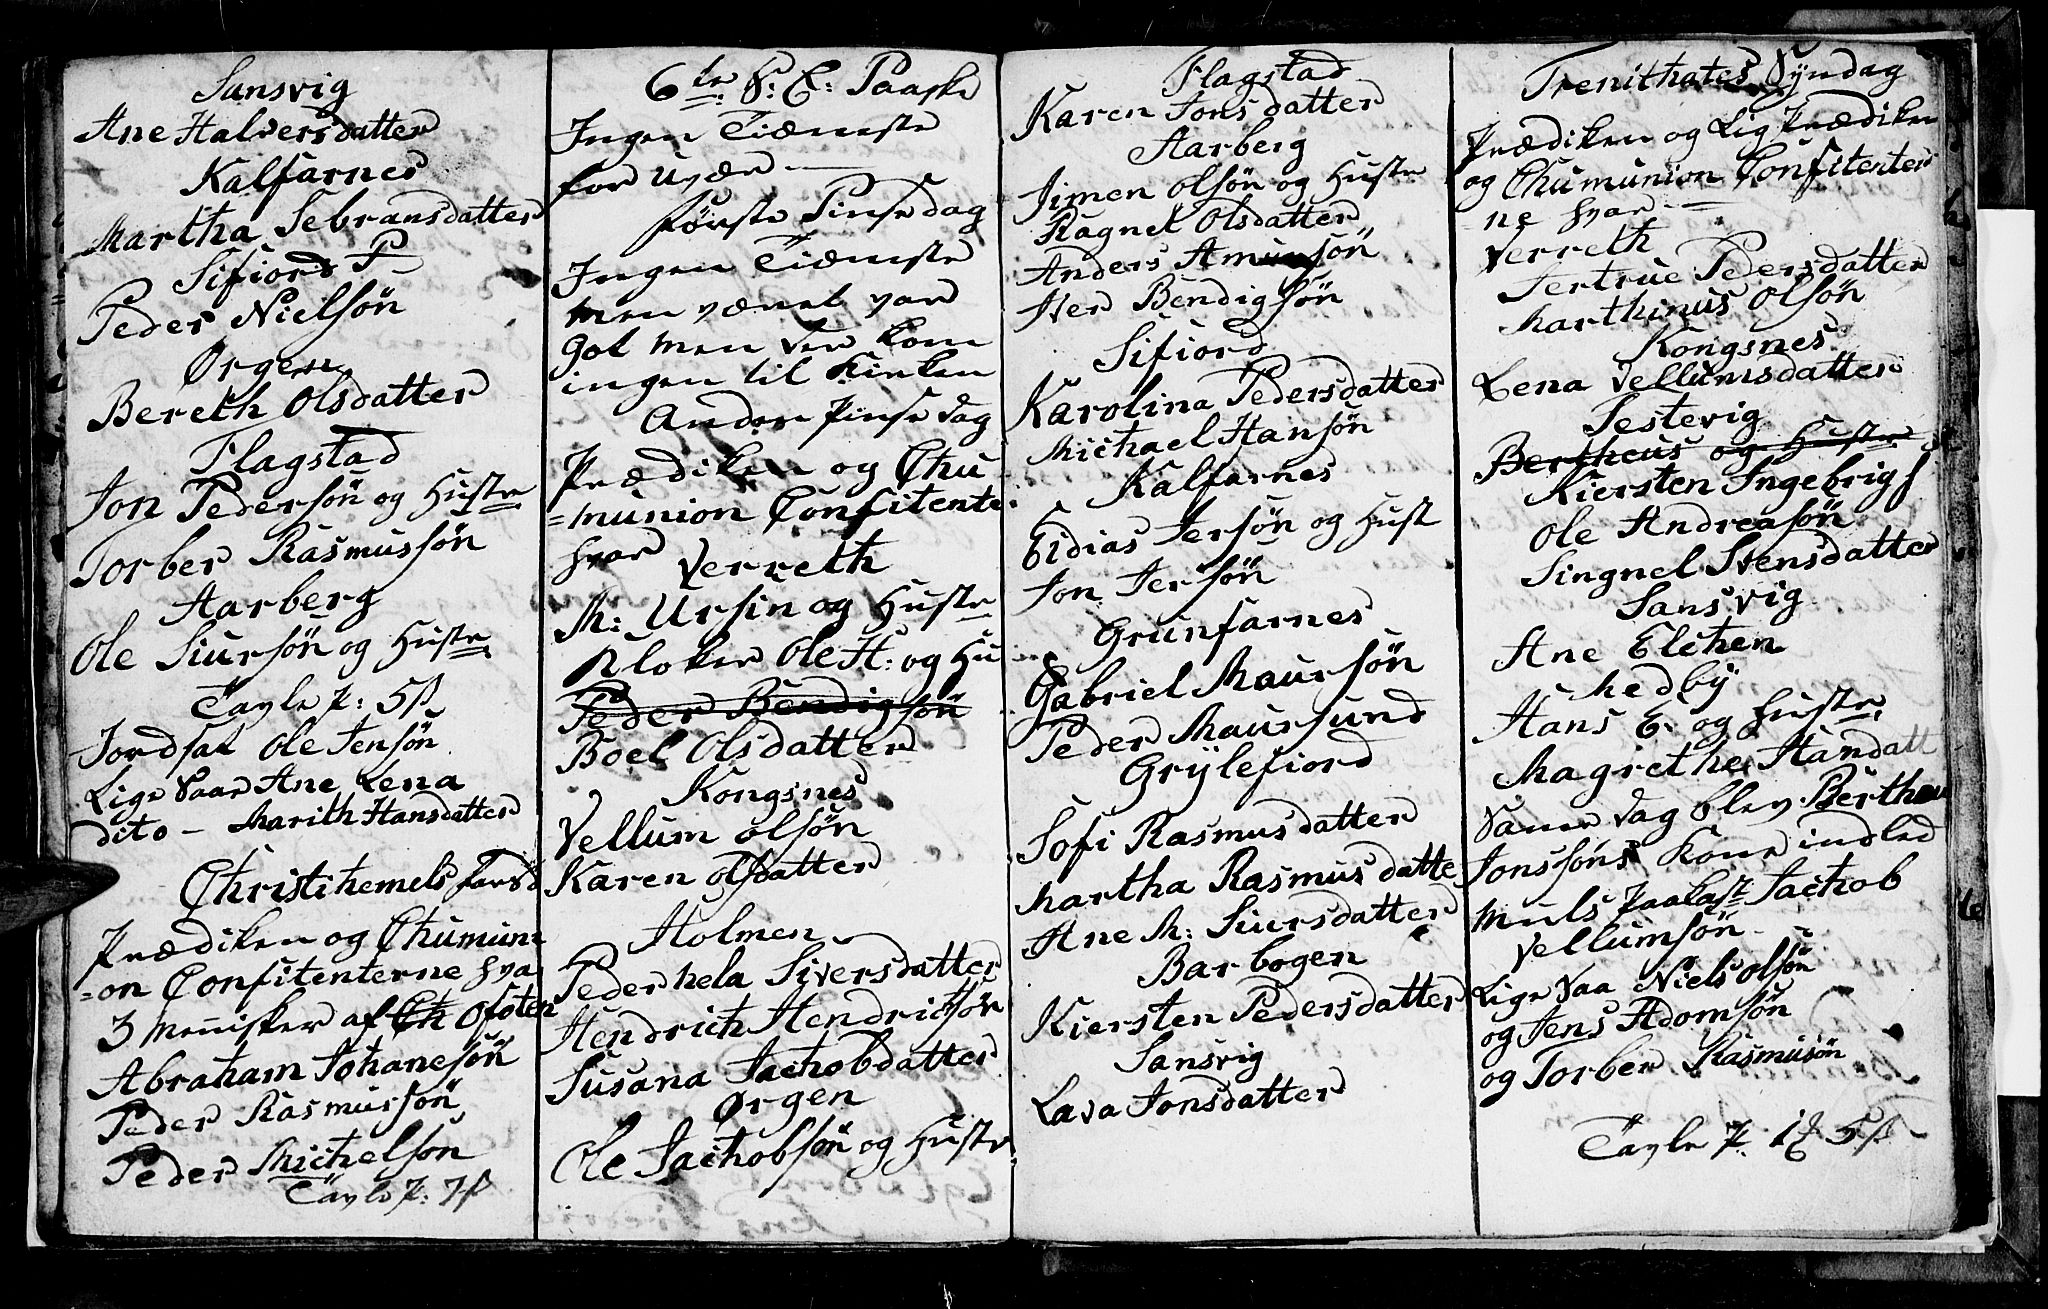 Sansvig
Ane Halversdatter
Kalfarnes
Martha Sebransdatter
Sifiord P
Peder Nielsön
Ørgen
Bereth Olsdatter
Flagstad
Jon Pedersön og Hustr
Torber Rasmussön
Aarberg
Ole Siursön og Hustr
Tavle P: 5 ß
Jordsat Ole Jensön
Lige Saa Ane Lena
dito - Marith Hansdatter
Christi hemels farsd
Prædiken og Chumuni
=on Confitenterne hva
3 Mennisker af Ofoten
Abraham Johanesön
Peder Rasmussön
Peder Michelsön
Tavle P: 7 ß
6te S: E: Paaske
Ingen Tiæneste
for Uvær
Første Pinse dag
Ingen Tiæneste
men væuet var
got men der kom
ingen til Kirken
Anden Pinse dag
Prædiken og Chu
=munion Confitente
hvar
Verreth
M: Ursin og Hustr
Kloker Ole H: og Hu
Peder Bendigsön
Boel Olsdatter
Kongsnes
Vellum Olsön
Karen Olsdatter
Holmen
Pederhela Siversdatter
Hendrich Hendrichsön
Susana Jachobdatter
Ørgen
Ole Jachobsön og Hustr
Flagstad
Karen Jonsdatter
Aarberg
Jimen Olsön og Hustr
Ragnel Olsdatter
Anders Amunsön
Iver Bendigsön
Sifiord
Karolina Pedersdatter
Michael Hansön
Kalfarnes
Eldias Jersön og Hust
Jon Jersön
Grunfarnes
Gabriel Maursön
Peder Maursund
Grÿlefiord
Sofi Rasmusdatter
Martha Rasmusdatte
Ane M: Siursdatter
Barbogen
Kiersten Pedersdatter
Sansvig
Lava Jonsdatter
Trenithates Syndag
Prædiken og Lig Prædiken
og Chumunion Confitenter
ne hvar
Verreth
Jertrue Pedersdatter
Marthinus Olsön
Kongsnes
Lena Vellumsdatter
Sestevig
Bertheus og Hustr
Kiersten Ingebrigs
Ole Andreasön
Singnel Svensdatter
Sansvig
Ane Elchen
Medbÿ
Hans E. og Hustr
Magrethe Handatt
Same dag blev Bertheu
Jonssöns Kone indled
Jachob
Vellumsön
Lige Saa Niels Olsön
og Jens Adomsön
og Torber Rasmusön
Tavle P: 5 ß